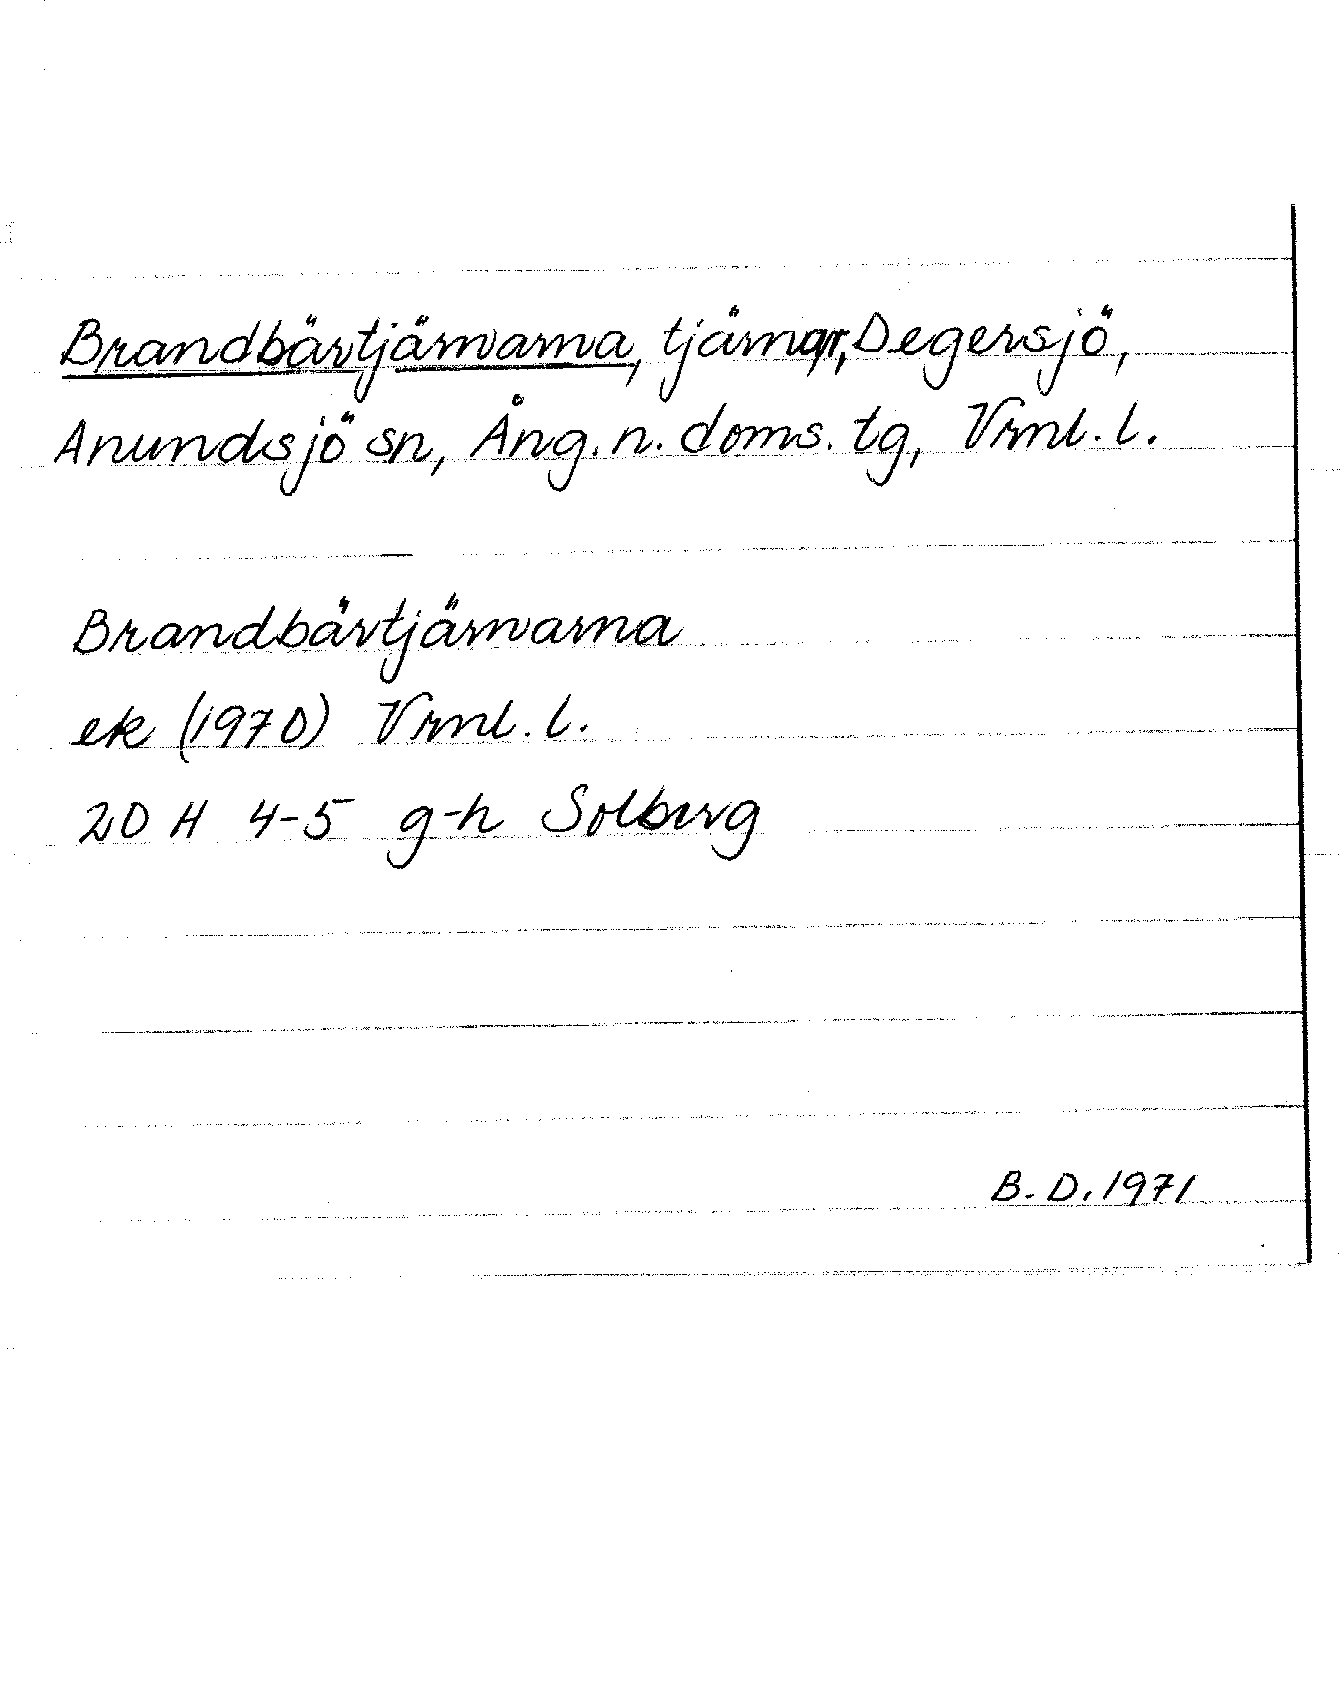 Brandbärtjärnarna, tjärnar, Degersjö,
Anundsjö sn, Ång. n. doms. tg, Vrnl. l.
Brandbärtjärnarna
ek (1970) Vrnl. l.
20 H 4-5 g-h Solberg
B. D. 1971